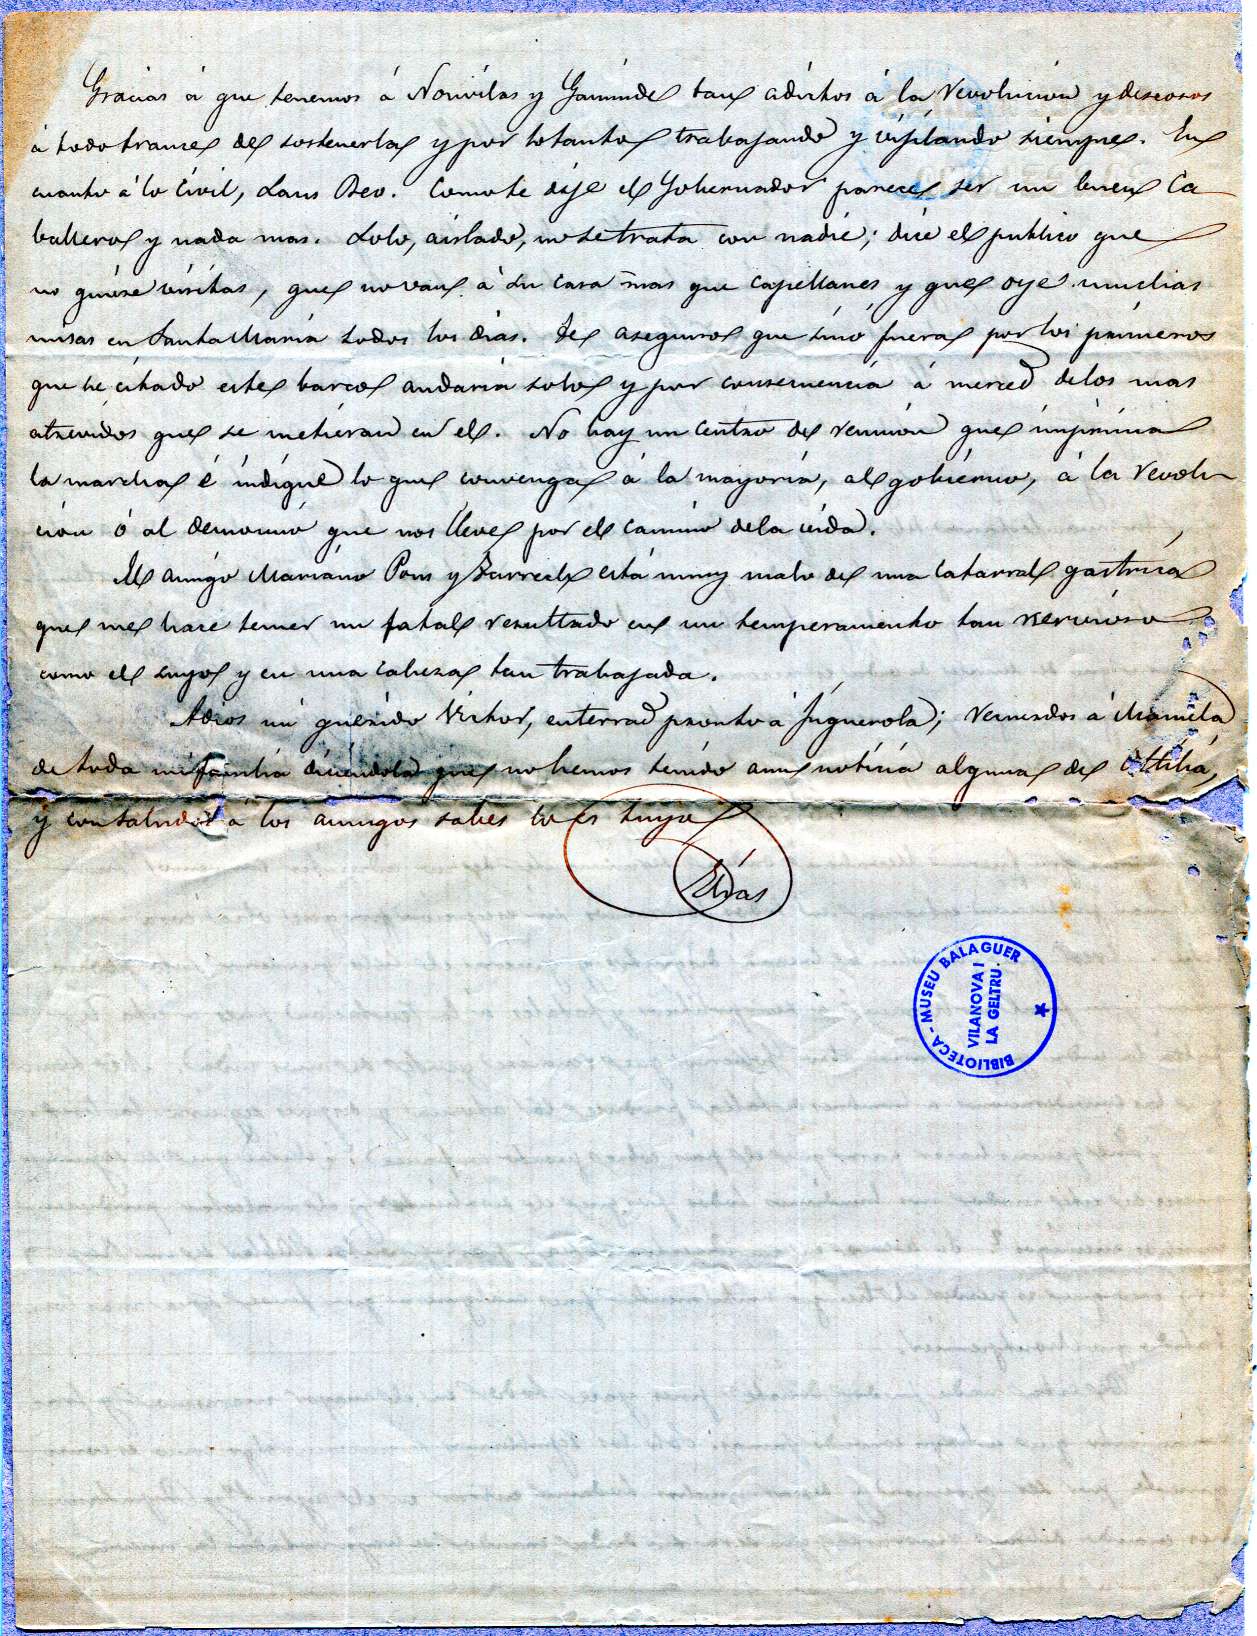 Gracias á que tenemos á Nouvilas y Gaminde tan adictos á la revolucion y deseosos
á todo trance de sostenerla y por lo tanto trabajando y vijilando siempre. En
cuanto á lo civil, Laus Deo. Como te dije el Gobernador parece ser un buen Ca
ballero y nada mas. Solo, aislado, no se trata con nadie; dice el publico que
no quiere visitas, que no van á su casa mas que capellanes y que oye muchas
misas en Santa Maria todos los dias. Te aseguro que sino fuera por los primeros
que he citado este barco andaria solo y por consecuencia á merced de los mas
atrevidos que se metieran en el. No hay un centro de reunion que imprima
la marcha é indique lo que convenga á la mayoria, al gobierno, á la revolu
cion ó al demonio que nos lleve por el camino de la vida.
El amigo Mariano Pons y Tarrech está muy malo de una catarral gastrica
que me hace temer un fatal resultado en un temperamento tan nervioso
como el suyo y en una cabeza tan trabajada.
Adios mi querido Victor, enterrad pronto á Figuerola; recuerdos á Manuela
de toda mi familia diciendola que no hemos tenido aun noticia alguna de Otilia,
y con saludos á los amigos sabes lo es tuyo
Elias
BIBLIOTECA - MUSEU BALAGUER
VILANOVA I
LA GELTRU.